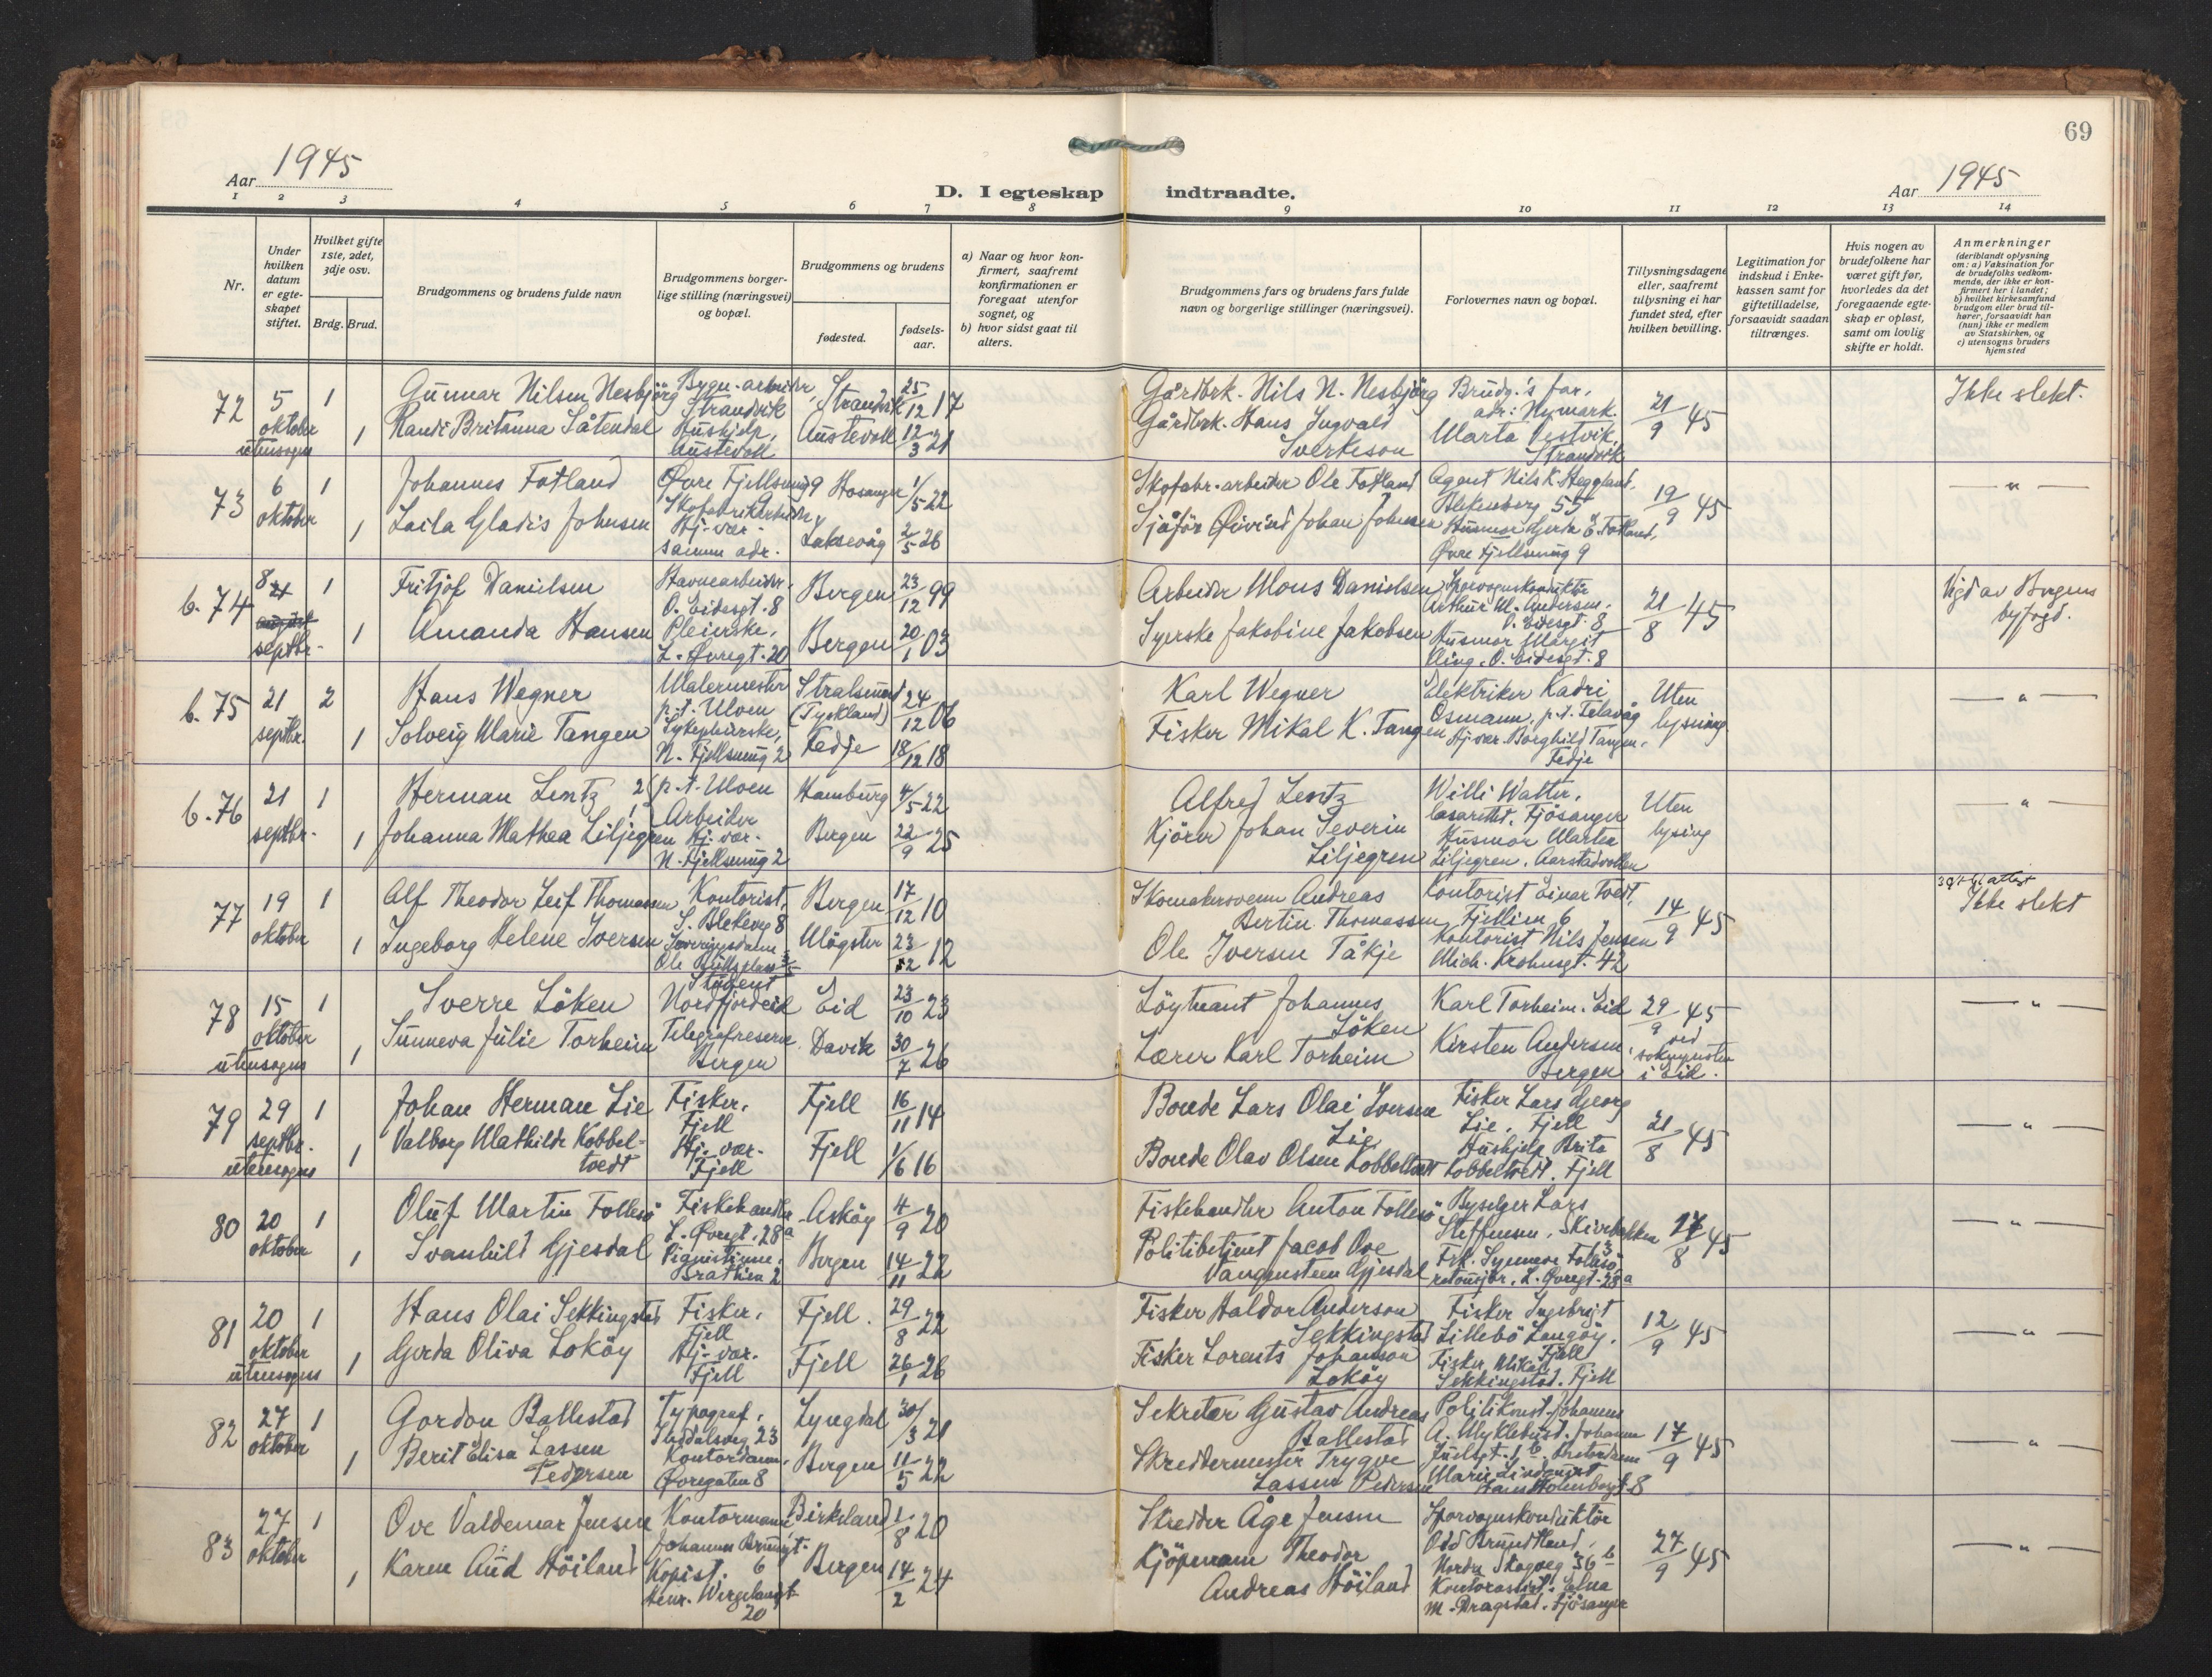 69
Aar 1945
D. I egteskap indtraadte.
Aar 1945
1 2 3 4 5 6 7 8 9 10 11 12 13 14
Nr.
Under hvilken datum er egte- skapet stiftet.
Hvilket gifte 1ste, 2det, 3dje osv.
Brdg. Brud.
Brudgommens og brudens fulde navn
Brudgommens borger- lige stilling (næringsvei) og bopæl.
Brudgommens og brudens
fødested.
fødsels- aar.
a) Naar og hvor kon- firmert, saafremt konfirmationen er foregaat utenfor sognet, og
b) hvor sidst gaat til alters.
Brudgommens fars og brudens fars fulde navn og borgerlige stillinger (næringsvei).
Forlovernes navn og bopæl.
Tillysningsdagene eller, saafremt tillysning ei har fundet sted, efter hvilken bevilling.
Legitimation for indskud i Enke- kassen samt for giftetilladelse, forsaavidt saadan tiltrænges.
Hvis nogen av brudefolkene har været gift før, hvorledes da det foregaaende egte- skap er opløst, samt om lovlig skifte er holdt.
Anmerkninger (deriblandt oplysning om: a) Vaksination for de brudefolks vedkom- mende, der ikke er kon- firmert her i landet; b) hvilket kirkesamfund brudgom eller brud til- hører, forsaavidt han (hun) ikke er medlem av Statskirken, og c) utensogns bruders hjemsted
72 5 oktober utensogns 1 Gunnar Nilsen Nesbjörg Bygn.-arbeider, Strandvik Strandvik 25/12 17 Gårdbrk. Nils N. Nesbjörg Brudg.'s far, adr: Nymark. 21/9 45 Ikke slekt.
1 Randi Britanna Såtendal Hushjelp, Austevoll Austevoll 12/3 21 Gårdbrk. Hans Ingvald Sverkeson Marta Vestvik, Strandvik
73 6 oktober 1 Johannes Fotland Øvre Fjellsmug 9 Skofabrikkarbeider, Hosanger 1/5 22 Skofabr.arbeider Ole Fotland Agent Nils K. Heggland, Blekenberg 55 19/9 45 — " —
1 Laila Gladis Johnsen Hj. vær. samme adr. Laksevåg 2/5 26 Sjåför Øivind Johan Johnsen Husmor Gerda E. Fotland, Øvre Fjellsmug 9
b. 74 8 septbr. 1 Fritjof Danielsen Havnearbeider, O. Eidesgt. 8 Bergen 23/12 99 Arbeider Mons Danielsen Sporvognskonduktör Arthur M. Andersen, O. Eidesgt. 8 21/8 45 Vigd av Bergens byfogd.
1 Amanda Hansen Pleierske, L. Øvregt. 20 Bergen 20/1 03 Syerske Jakobine Jakobsen Husmor Margit O. Eidesgt. 8
b. 75 21 septbr. 2 Hans Wegner Malermester p.t. Ulven Stralsund (Tyskland) 24/12 06 Karl Wegner Elektriker Kadri Osmann, p.t. Telavåg Uten lysning — " —
1 Solveig Marie Tangen Sykepleierske, N. Fjellsmug 2 Fedje 18/12 18 Fisker Mikal K. Tangen Hj. vær. Borghild Tangen, Fedje
b. 76 21 septbr. 1 Herman Lentz p.t. Ulven Arbeider Hamburg 4/5 22 Alfred Lentz Willi Walter, lasarettet, Fjösanger Uten lysing — " —
1 Johanna Mathea Liljegren Hj. vær. N. Fjellsmug 2 Bergen 22/9 25 Kjörer Johan Severin Liljegren Husmor Martha Liljegren, Aarstadvollen
77 19 oktober 1 Alf Theodor Leif Thomassen Kontorist, S. Blekevg 8 Bergen 17/12 10 Skomakersvenn Andreas Bertin Thomassen Kontorist Einar Tvedt, Fjellien 6 14/9 45 Ikke slekt
1 Ingeborg Helene Iversen Ole Bulls plass Mögster 23/12 12 Ole Iversen Tåkje Kontorist Nils Jensen Mich. Krohnsgt. 42
78 15 oktober utensogns 1 Sverre Löken Student Nordfjordeid Eid 23/10 23 Löytnant Johannes Löken Karl Torheim, Eid 29/9 45 ved sokneprsten i Eid. — " —
1 Sunneva Julie Torheim Telegrafreserve Bergen Davik 30/7 26 Lærer Karl Torheim Kirsten Andersen, Bergen
79 29 septbr. utensogns 1 Johan Herman Lie Fisker, Fjell Fjell 16/11 14 Bonde Lars Olai Iversen Lie Fisker Lars Georg Lie, Fjell 21/8 45 — " —
1 Valborg Mathilde Kobbel- tvedt Hj. vær. Fjell Fjell 1/6 16 Bonde Olav Olsen Kobbeltvedt Hushjelp Brita Kobbeltvedt, Fjell
80 20 oktober 1 Oluf Martin Follesö Fiskehandler L. Øvregt. 28a Asköy 4/9 20 Fiskehandler Anton Follesö Byselger Lars Steffensen, Skivebakken 3 17/8 45 — " —
1 Svanhild Gjesdal Pianistinne, Bratlien 2 Bergen 14/11 22 Politibetjent Jacob Ove Vangensteen Gjesdal Frk. Synnöve Follesö L. Øvregt. 28a
81 20 oktober utensogns 1 Hans Olai Sekkingstad Fisker, Fjell Fjell 29/8 22 Fisker Haldor Anderson Sekkingstad Fisker Ingebrigt Lillebö Langöy, Fjell 12/9 45 — " —
1 Gerda Oliva Loköy Hj. vær. Fjell Fjell 26/1 26 Fisker Lorents Johanson Loköy Fisker Mikal Sekkingstad, Fjell
82 27 oktober 1 Gordon Ballestad Typograf, 23 Lyngdal 30/3 21 Sekretær Gustav Andreas Ballestad Politikonst. Johannes A. Myklebust, 17/9 45 — " —
1 Berit Elisa Lassen Pedersen Kontordame, Øvregaten 8 Bergen 11/5 22 Skreddermester Trygve Lassen Pedersen Kontordame Marie Lindqvist Hans Holmboesgt. 8
83 27 oktober 1 Ove Valdemar Jensen Kontormann Johannes Brunsgt. 6 Birkeland 1/8 20 Skredder Åge Jensen Sporvognskonduktör Odd Brundtland, Nordre Skogveg 36 b 27/9 45 — " —
1 Karen Aud Höiland Kopist. Henr. Wergelandsgt. 20 Bergen 14/2 24 Kjöpmann Theodor Andreas Höiland Kontorassist. Elna M. Dragstad, Fjösanger